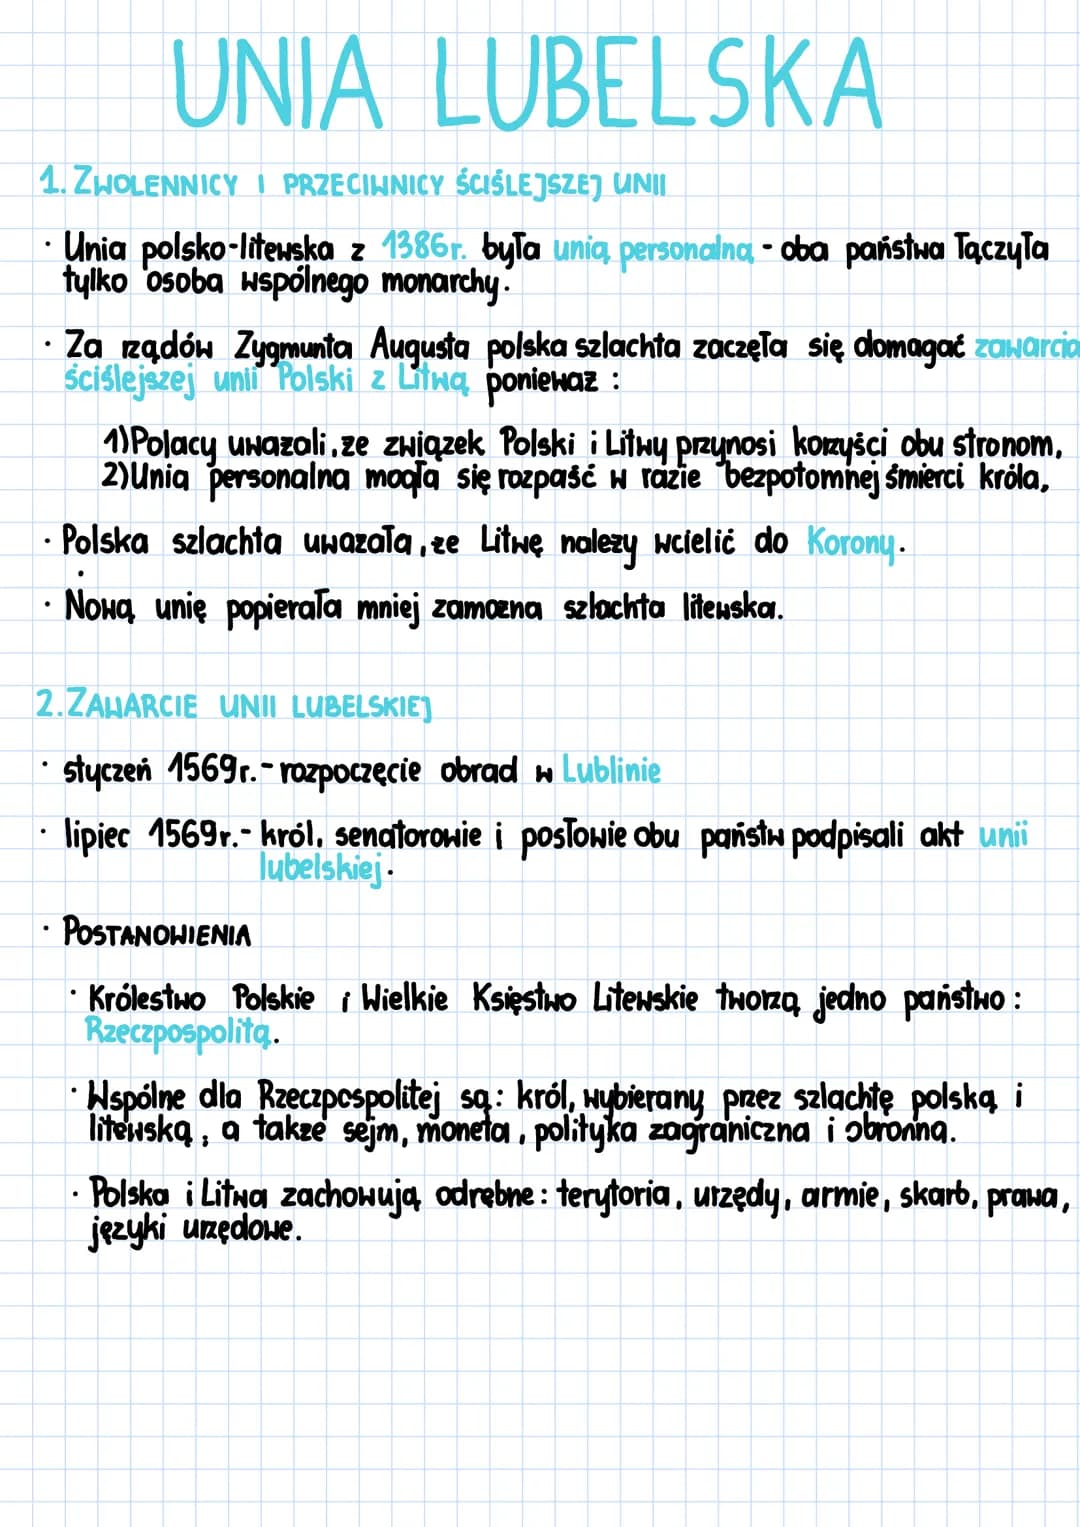 UNIA LUBELSKA
1. ZWOLENNICY I PRZECIWNICY ŚCIŚLEJSZEJ UNII
· Unia polsko-litewska z 1386r. była unią personalną - oba państwa łączyła
tylko osoba wspólnego monarchy.
· Za rządów Zygmunta Augusta polska szlachta zaczęła się domagać zawarcia
ściślejszej unii Polski z Litwą ponieważ :
1)Polacy uważali, że związek Polski i Litwy przynosi korzyści obu stronom,
2)Unia personalna mogła się rozpaść w razie bezpotomnej śmierci króla,
· Polska szlachta uważała, że Litwę należy wcielić do Korony.
· Nową unię popierała mniej zamożna szlachta litewska.
2. ZAWARCIE UNII LUBELSKIEJ
· styczeń 1569r.- rozpoczęcie obrad w Lublinie
· lipiec 1569r.- król, senatorowie i posłowie obu państw podpisali akt unii
lubelskiej.
· POSTANOWIENIA
· Królestwo Polskie i Wielkie Księstwo Litewskie tworzą jedno państwo :
Rzeczpospolitą.
· Wspólne dla Rzeczpospolitej są: król, wybierany przez szlachtę polską i
litewską, a także sejm, moneta, polityka zagraniczna i obronna.
· Polska i Litwa zachowują odrębne: terytoria, urzędy, armie, skarb, prawa,
języki urzędowe.